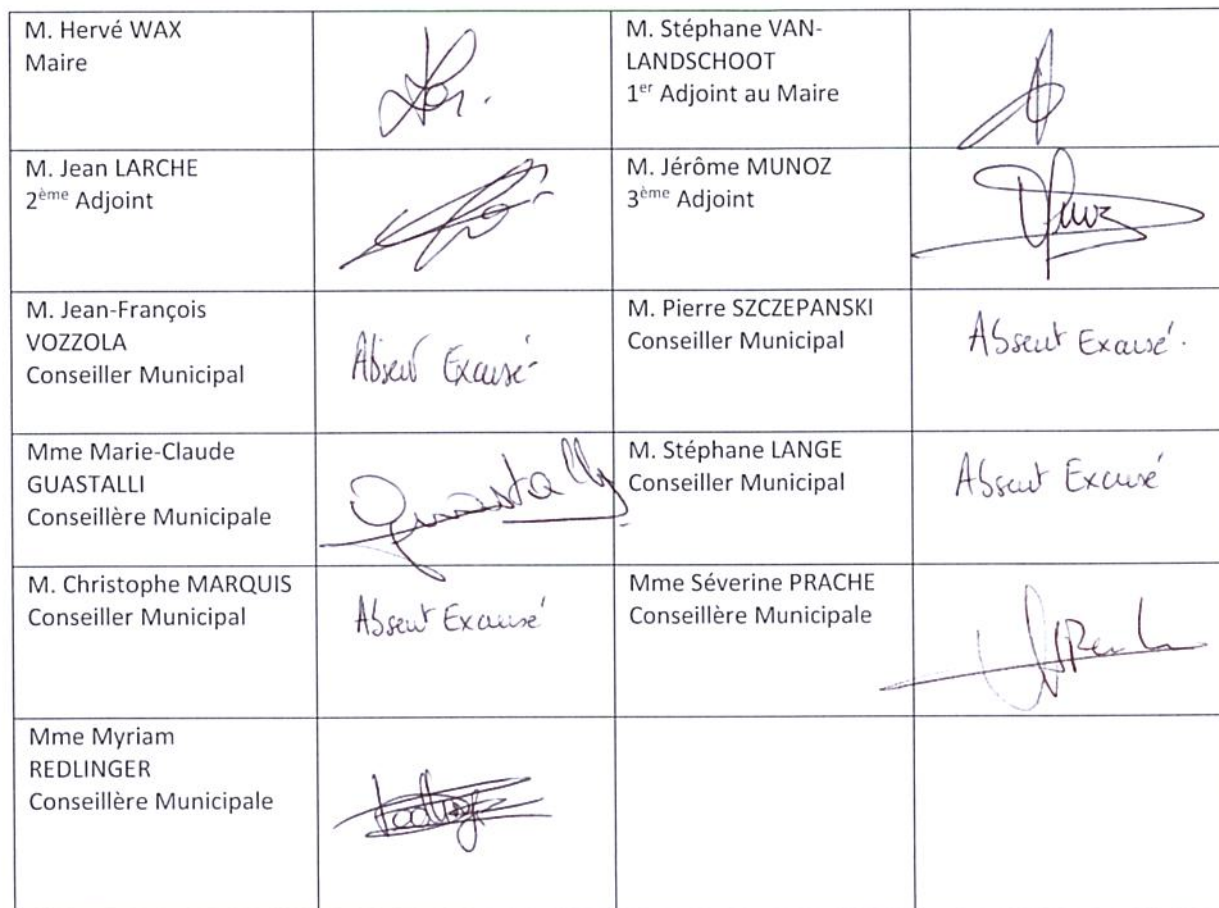 M. Hervé WAX
Maire
M. Stéphane VAN-
LANDSCHOOT
1er Adjoint au Maire
M. Jean LARCHE
2ème Adjoint
M. Jérôme MUNOZ
3ème Adjoint
M. Jean-François
VOZZOLA
Conseiller Municipal
Absent Excusé
M. Pierre SZCZEPANSKI
Conseiller Municipal
Absent Excusé.
Mme Marie-Claude
GUASTALLI
Conseillère Municipale
M. Stéphane LANGE
Conseiller Municipal
Absent Excusé
M. Christophe MARQUIS
Conseiller Municipal
Absent Excusé
Mme Séverine PRACHE
Conseillère Municipale
Mme Myriam
REDLINGER
Conseillère Municipale